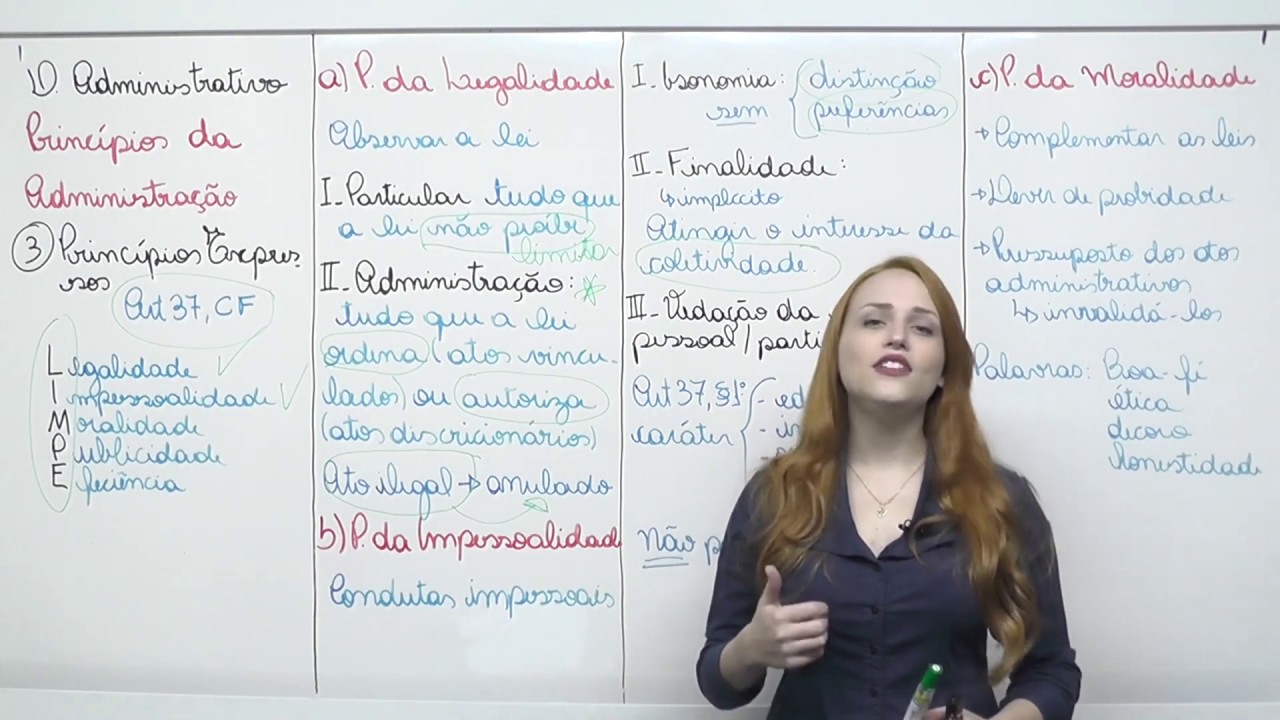 D. Administrativo
Princípios da
Administração
③ Princípios Expres-
sos
Art 37, CF
Legalidade
Impessoalidade
Moralidade
Publicidade
Eficiência
a) P. da Legalidade
Observar a lei
I. Particular tudo que
a lei não proibir
limitar
II. Administração: *
tudo que a lei
ordena (atos vincu-
lados) ou autoriza
(atos discricionários)
Ato ilegal → anulado
b) P. da Impessoalidade
Condutas impessoais
I. Isonomia: distinção
sem preferências
II. Finalidade:
↳ implícito
Atingir o interesse da
coletividade.
III. Vedação da
pessoal/
Art 37, §1º
caráter
Não
c) P. da Moralidade
→ Complementar as leis
→ Dever de probidade
→ Pressuposto dos atos
administrativos
↳ invalidá-los
Palavras: Boa-fé
ética
decoro
honestidade